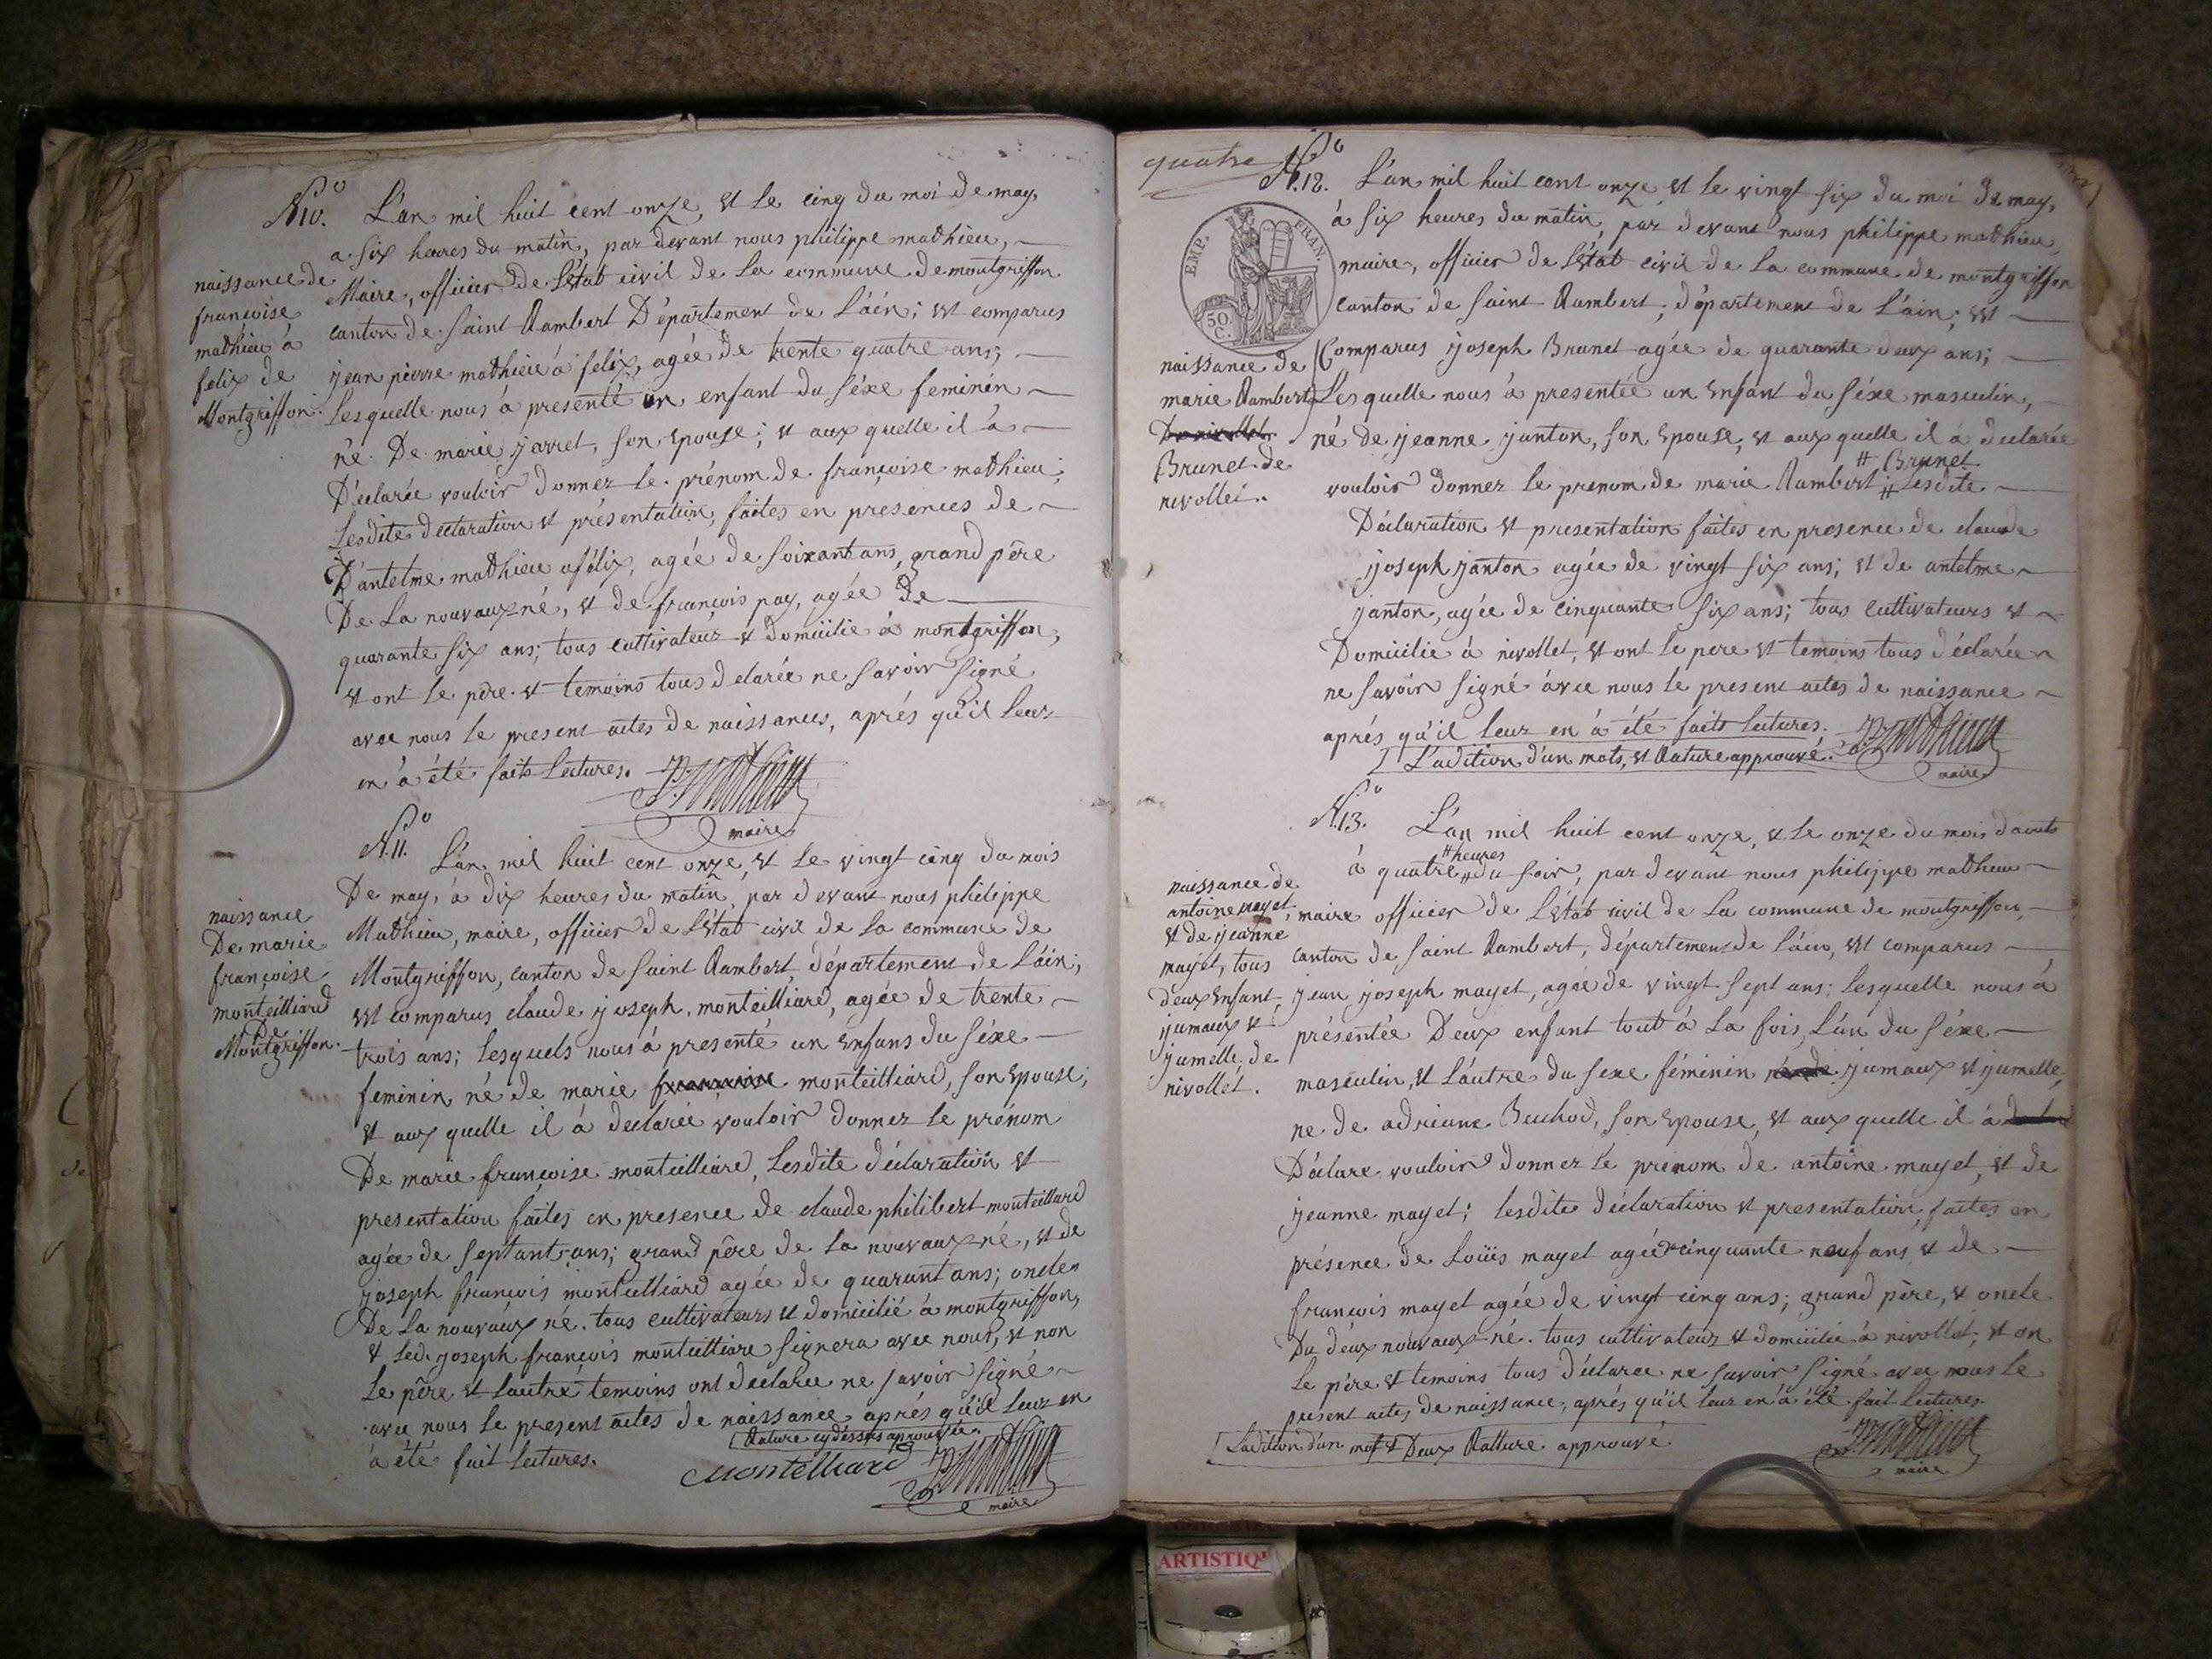 N.º 10. L'an mil huit cent onze, et le cinq du moi de may,
a six heures du matin, par devant nous philippe mathieu,
Maire, officier de L'état civil de la commune de montgriffon
canton de saint Rambert Département de L'áin; est comparus
jean pierre mathieu á felix, agée de trente quatre ans;
Lesquelle nous á presenté un enfant du séxe feminin
né De marie jarret, son epouse; et aux quelle il á
Déclarée vouloir donner le prénom de françoise mathieu;
Lesdite declaration et présentation, faites en presences de
D'antelme mathieu afélix, agée de soixant ans, grand pére
De La nouvaux né, et de françois pay, agée de
quarante six ans; tous cultivateur et domicilie á montgriffon,
et ont le pére et temoins tous declarée ne savoir signé
avec nous le present actes de naissances, aprés qu'il leur
en á été faite lectures.
P. Mathieu
maire
naissance de
françoise
mathieu á
felix de
Montgriffon.
N.º 11. L'an mil huit cent onze, et le vingt cinq du mois
De may, á dix heures du matin, par devant nous philippe
Mathieu, maire, officier de L'état civil de la commune de
Montgriffon, canton de saint Rambert, département de L'áin;
est comparus claude joseph monteilliard, agée de trente
trois ans; lesquels nous á presenté un enfans du séxe
feminin né de marie françoise monteilliard, son epouse;
et aux quelle il á declarée vouloir donner le prénom
De marie françoise monteilliard, Lesdite déclaration et
presentation faites en presence de claude philibert monteillard
agée de septant ans; grand pére de la nouvaux né, et de
joseph françois monteilliard agée de quarant ans; oncle
De La nouvaux né. tous cultivateurs et domicilié á montgriffon,
et led. joseph françois monteilliard signera avec nous, et non
Le pére et l'autre temoins ont declaree ne savoir signé
avec nous le present actes de naissance aprés qu'il leur en
á été fait lectures.
Rature cy déssus aprouvée.
Montelliard
P. Mathieu
maire
naissance
De marie
françoise
monteilliard
De
Montgriffon.
quatre
N.º 12. L'an mil huit cent onze, et le vingt six du moi de may,
á six heures du matin, par devant nous philippe mathieu
maire, officier de L'état civil de la commune de montgriffon
canton de saint Rambert; département de L'áin; est
Comparus joseph Brunet agée de quarante deux ans;
Lesquelle nous á presentée un enfant du séxe masculin,
né de jeanne janton, son epouse, et aux quelle il á declarée
# Brunet
vouloir donner le prenom de marie Rambert; # Lesdite
Déclaration et presentation faites en presence de claude
joseph janton agée de vingt six ans; et de antelme
janton, agée de cinquante six ans; tous cultivateurs et
Domicilie á nivollet, et ont le pere et temoins tous déclarée
ne savoir signé ávec nous le present actes de naissance
aprés qu'il leur en á été faite lectures.
L'adition d'un mots, et Rature approuvé.
P. Mathieu
maire
EMP. FRAN.
50 C.
naissance de
marie Rambert
De nivollet
Brunet de
nivollet.
N.º 13. L'an mil huit cent onze, et le onze du mois d'aoute
# heures
á quatre # du soir, par devant nous philippe mathieu
maire officier de L'état civil de la commune de montgriffon,
canton de saint Rambert, département de L'áin, est comparus
jean joseph mayet, agée de vingt sept ans; Lesquelle nous á
présentée Deux enfant tout á la fois, L'un du séxe
masculin, et L'autre du sexe féminin né de jumaux et jumelle,
ne de adriane Beuchod, son epouse, et aux quelle il á
Déclare vouloir donner le prenom de antoine mayet, et de
jeanne mayet; lesdite déclaration et presentation, faites en
présence de Loüis mayet agée de cinquante neuf ans, et de
françois mayet agée de vingt cinq ans; grand pére, et oncle
Du deux nouvaux né. tous cultivateur et domicilie á nivollet; et on
Le pére et temoins tous déclarée ne savoir signé avec nous le
present actes de naissance, aprés qu'il leur en á été fait lectures.
L'adition d'un mot et Deux Ratture approuvé
P. Mathieu
maire
naissance de
antoine mayet
et de jeanne
mayet, tous
deux enfant
jumaux et
jumelle de
nivollét.
ARTISTIQ